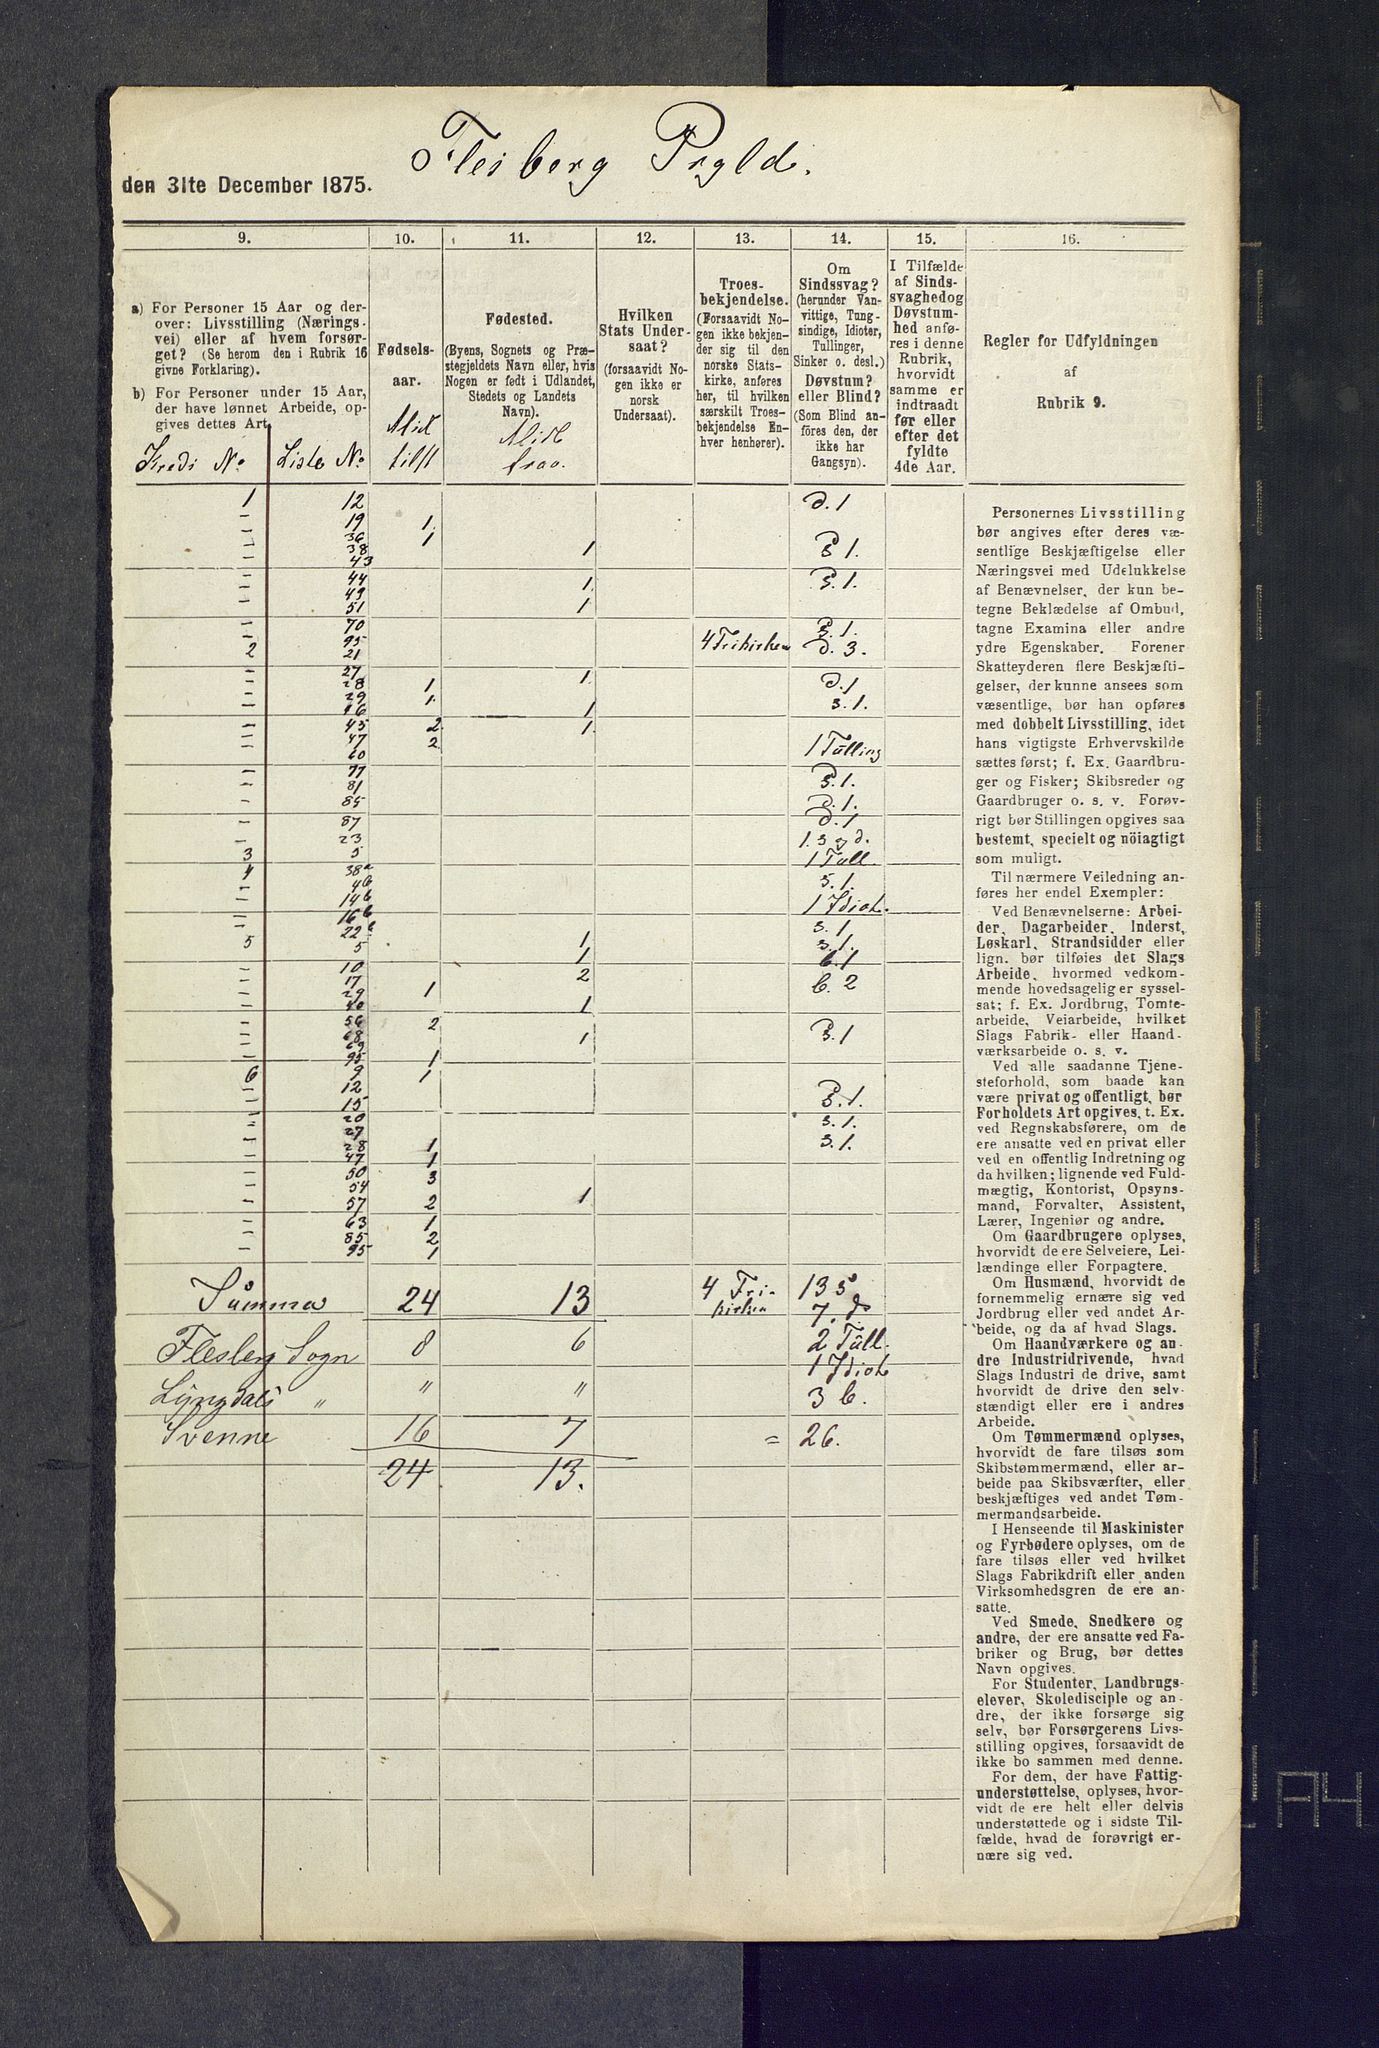 Flesberg Prgld.
den 31te December 1875.
9. 10. 11. 12. 13. 14. 15. 16.
a) For Personer 15 Aar og der-
over: Livsstilling (Nærings-
vei) eller af hvem forsør-
get? (Se herom den i Rubrik 16
givne Forklaring).
b) For Personer under 15 Aar,
der have lønnet Arbeide, op-
gives dettes Art.
Kreds No Liste No
Fødsels-
aar.
Midl
tilst
Fødested.
(Byens, Sognets og Præ-
stegjeldets Navn eller, hvis
Nogen er født i Udlandet,
Stedets og Landets
Navn).
Midl
frav.
Hvilken
Stats Under-
saat?
(forsaavidt No-
gen ikke er
norsk
Undersaat).
Troes-
bekjendelse.
(Forsaavidt No-
gen ikke bekjen-
der sig til den
norske Stats-
kirke, anføres
her, til hvilken
særskilt Troes-
bekjendelse En-
hver henhører).
Om
Sindssvag?
(herunder Van-
vittige, Tung-
sindige, Idioter,
Tullinger,
Sinker o. desl.)
Døvstum?
eller Blind?
(Som Blind an-
föres den, der
ikke har
Gangsyn).
I Tilfælde
af Sinds-
svaghedog
Døvstum-
hed anfø-
res i denne
Rubrik,
hvorvidt
samme er
indtraadt
før eller
efter det
fyldte
4de Aar.
Regler for Udfyldningen
af
Rubrik 9.
1 12 d. 1
" 19 1.
" 36 1
" 38 1 S 1.
" 43
" 44 1 S. 1.
" 49
" 51 1
" 70 S. 1.
" 95 4 Frikirken d. 3.
2 21
" 27 1.
" 28 1 d. 1
" 29 1. s. 1.
" 46 1
" 45 2 1.
" 47 2.
" 60 1 Tulling
" 77
" 81 S. 1.
" 85 d. 1.
" 87 d. 1
" 23 1. s og d.
3 5 1 Tull.
4 38a
" 4b s. 1.
" 14b 1 Idiot.
" 16b
" 22 s. 1
5 5 1 s. 1.
" 10 1 b. 1
" 17 2 b. 2
" 29 1
" 40 1
" 56 2
" 68 1 S. 1
" 69
" 95 1
6 9 1
" 12
" 15 S. 1.
" 20 s. 1.
" 27
" 28 1 s. 1.
" 47 1
" 50 3
" 54
" 57 2 1
" 63 1
" 85 2
" 95 1
Summa 24 13 4 Fri- 13 s
kirken 7. d
Flesberg Sogn 8 6 2 Tull.
1 Idiot
Lyngdals " " " 3 b.
Svenne 16 7 = 26.
24 13.
Personernes Livsstilling
bør angives efter deres væ-
sentlige Beskjæftigelse eller
Næringsvei med Udelukkelse
af Benævnelser, der kun be-
tegne Beklædelse af Ombud,
tagne Examina eller andre
ydre Egenskaber. Forener
Skatteyderen flere Beskjæfti-
gelser, der kunne ansees som
væsentlige, bør han opføres
med dobbelt Livsstilling, idet
hans vigtigste Erhvervskilde
sættes først; f. Ex. Gaardbru-
ger og Fisker; Skibsreder og
Gaardbruger o. s. v. Forøv-
rigt bør Stillingen opgives saa
bestemt, specielt og nöiagtigt
som muligt.
Til nærmere Veiledning an-
føres her endel Exempler:
Ved Benævnelserne: Arbei-
der, Dagarbeider, Inderst,
Løskarl, Strandsidder eller
lign. bør tilføies det Slags
Arbeide, hvormed vedkom-
mende hovedsagelig er syssel-
sat; f. Ex. Jordbrug, Tomte-
arbeide, Veiarbeide, hvilket
Slags Fabrik- eller Haand-
værksarbeide o. s. v.
Ved alle saadanne Tjene-
steforhold, som baade kan
være privat og offentligt, bør
Forholdets Art opgives, t. Ex.
ved Regnskabsførere, om de
ere ansatte ved en privat eller
ved en offentlig Indretning og
da hvilken; lignende ved Fuld-
mægtig, Kontorist, Opsyns-
mand, Forvalter, Assistent,
Lærer, Ingeniør og andre.
Om Gaardbrugere oplyses,
hvorvidt de ere Selveiere, Lei-
lændinge eller Forpagtere.
Om Husmænd, hvorvidt de
fornemmelig ernære sig ved
Jordbrug eller ved andet Ar-
beide, og da af hvad Slags.
Om Haandværkere og an-
dre Industridrivende, hvad
Slags Industri de drive, samt
hvorvidt de drive den selv-
stændigt eller ere i andres
Arbeide.
Om Tømmermænd oplyses,
hvorvidt de fare tilsøs som
Skibstømmermænd, eller ar-
beide paa Skibsværfter, eller
beskjæftiges ved andet Tøm-
mermandsarbeide.
I Henseende til Maskinister
og Fyrbødere oplyses, om de
fare tilsøs eller ved hvilket
Slags Fabrikdrift eller anden
Virksomhedsgren de ere an-
satte.
Ved Smede, Snedkere og
andre, der ere ansatte ved Fa-
briker og Brug, bør dettes
Navn opgives.
For Studenter, Landbrugs-
elever, Skoledisciple og an-
dre, der ikke forsørge sig
selv, bør Forsørgerens Livs-
stilling opgives, forsaavidt de
ikke bo sammen med denne.
For dem, der have Fattig-
understøttelse, oplyses, hvor-
vidt de ere helt eller delvis
understøttede og i sidste Til-
fælde, hvad de forøvrigt er-
nære sig ved.
A4